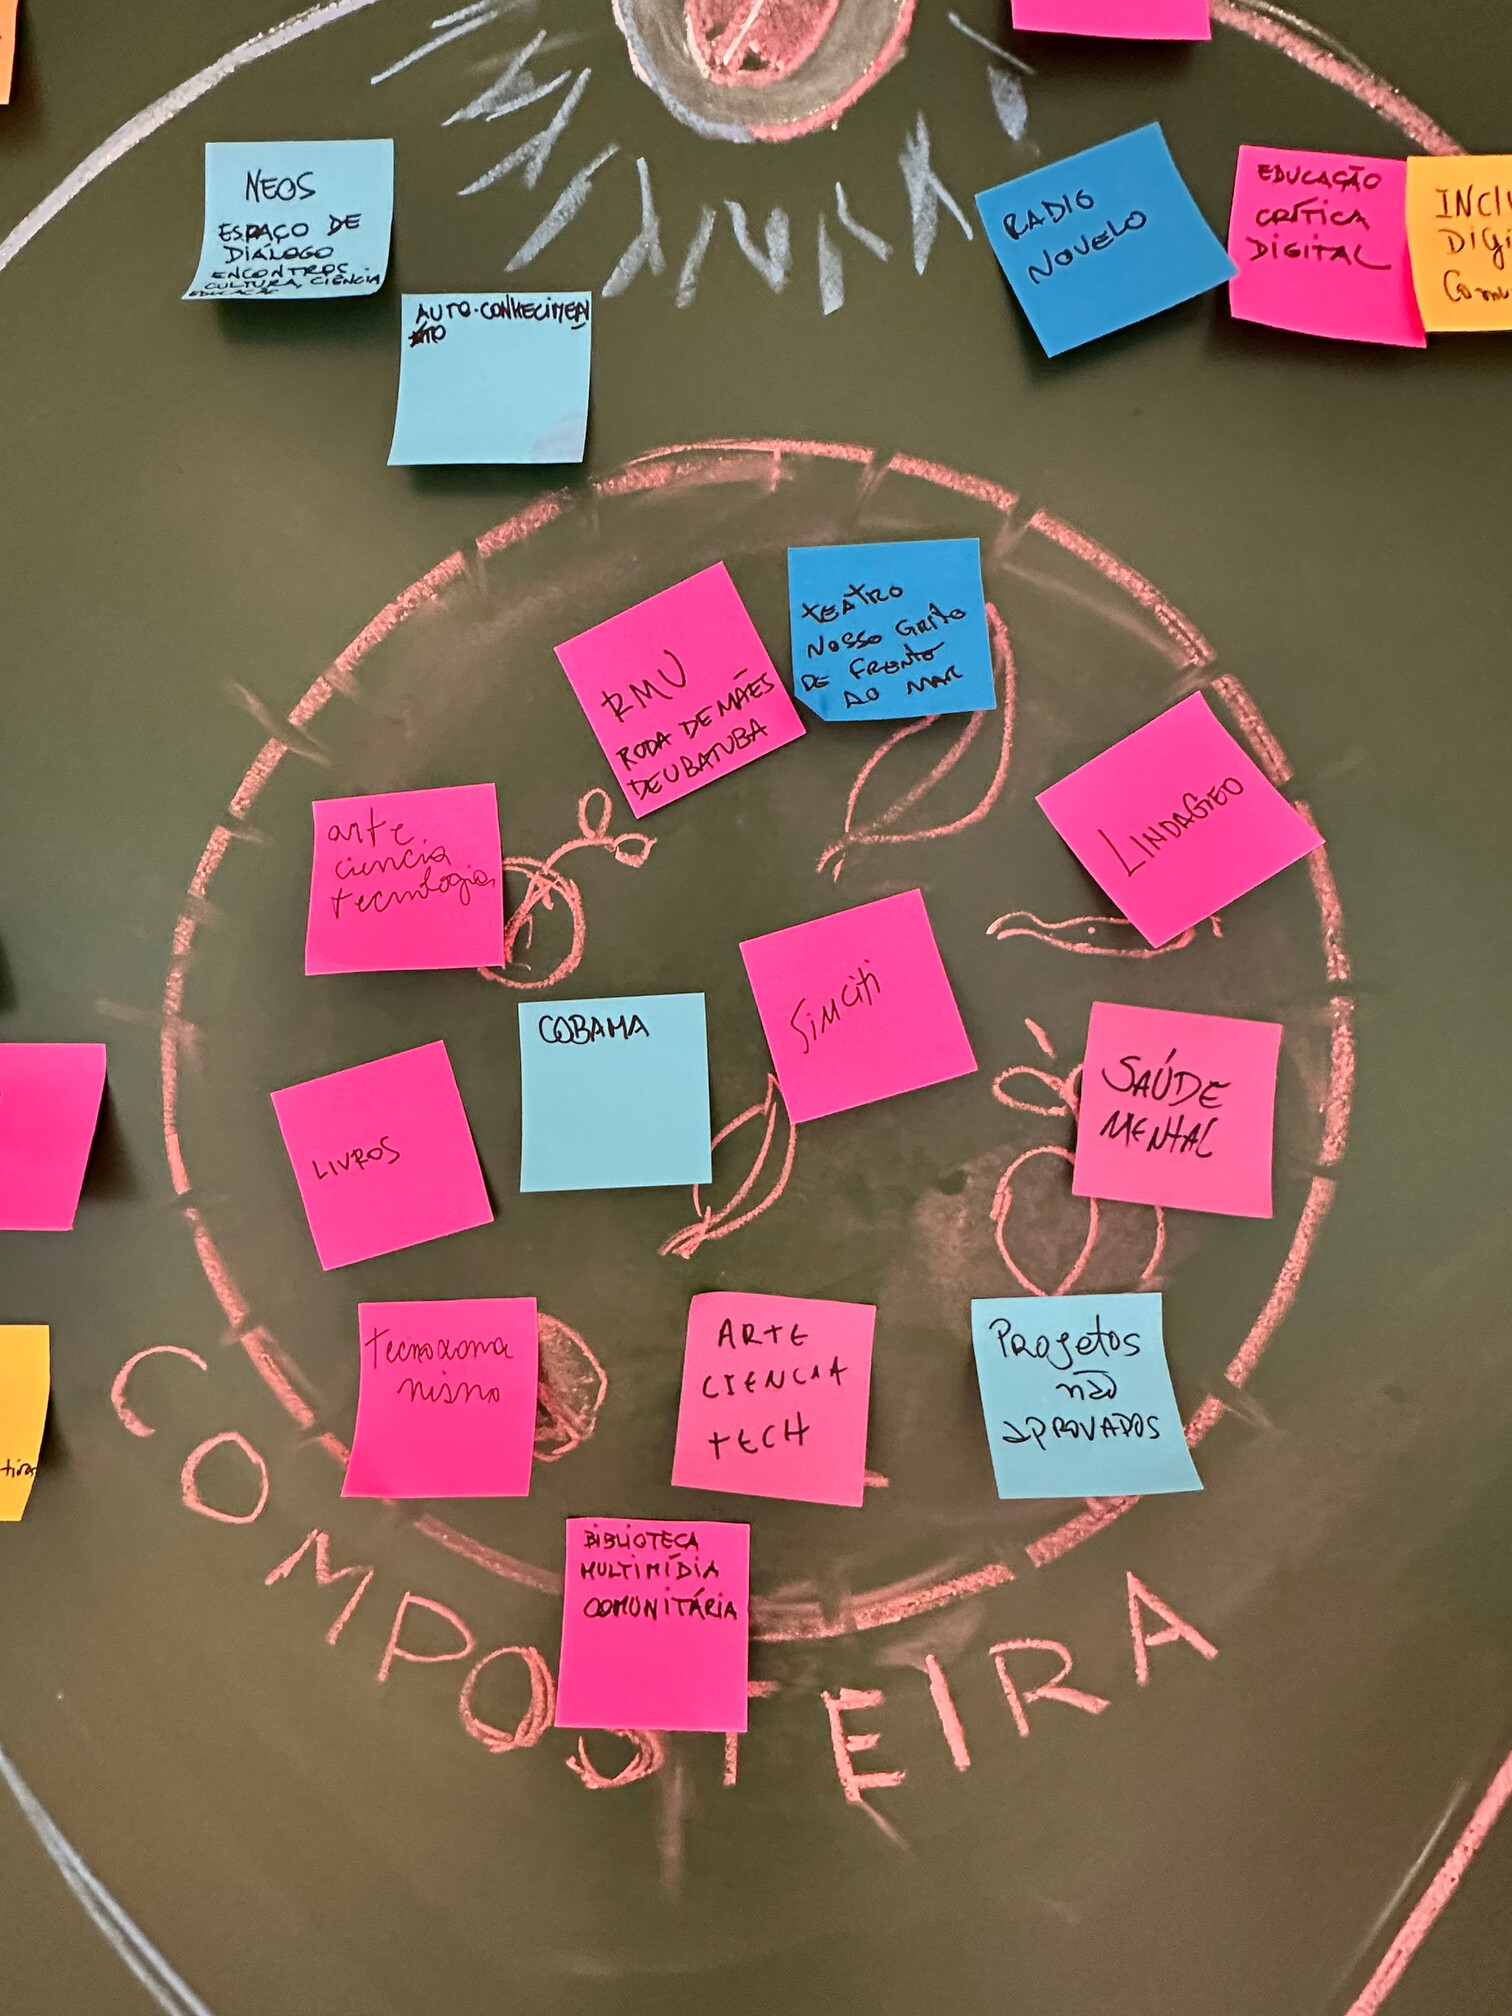 NEOS
ESPAÇO DE
DIÁLOGO
ENCONTROS
CULTURA, CIÊNCIA
EDUCAÇÃO
AUTO-CONHECIMEN
TO
RADIO
NOVELO
EDUCAÇÃO
CRÍTICA
DIGITAL
INCLU
DIGI
Com
RMU
RODA DE MÃES
DE UBATUBA
TEATRO
NOSSO GRITO
DE FRENTE
AO MAR
LINDAGEO
arte
ciencia
tecnologia
Simciti
COBAMA
SAÚDE
MENTAL
LIVROS
Tecnoxama
nismo
ARTE
CIENCIA
TECH
Projetos
não
APROVADOS
BIBLIOTECA
MULTIMÍDIA
COMUNITÁRIA
COMPOSTEIRA